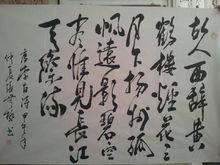 故人西辭黄
鶴樓煙花三
月下揚州孤
帆遠影碧空
盡惟見長江
天際流
唐李白詩甲午年
仲夏